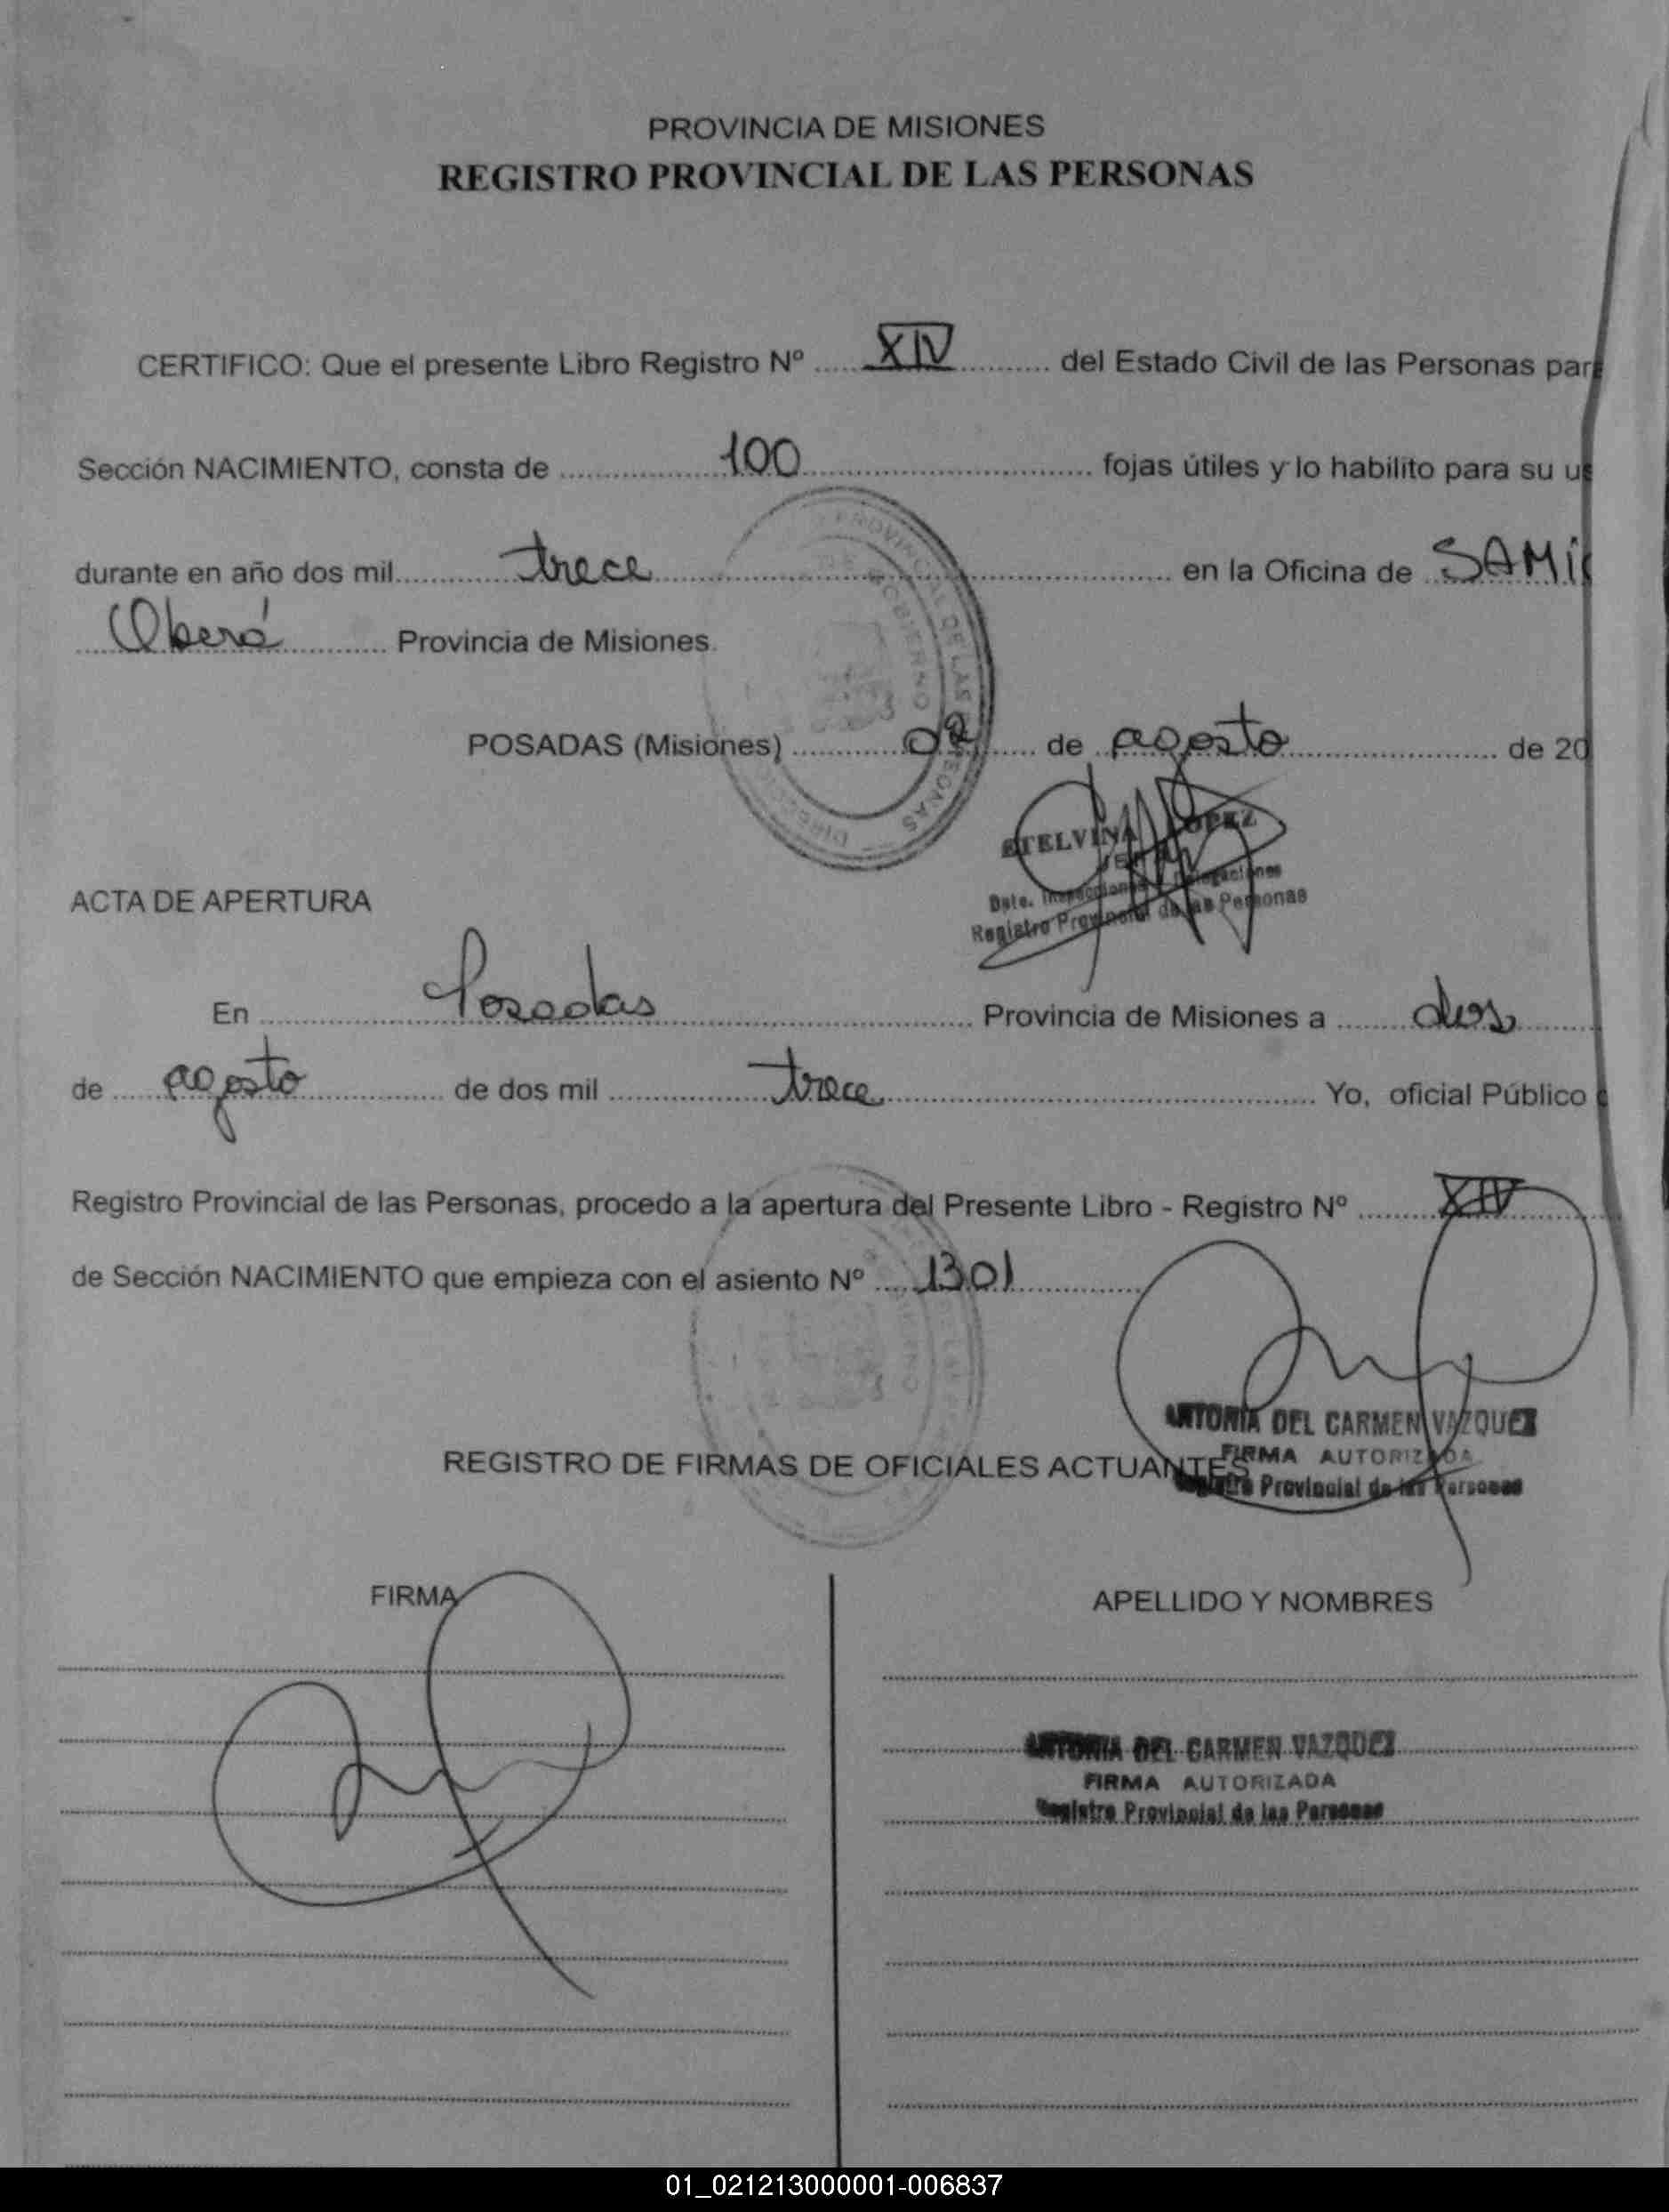 PROVINCIA DE MISIONES
REGISTRO PROVINCIAL DE LAS PERSONAS
CERTIFICO: Que el presente Libro Registro Nº ..... XIV ......... del Estado Civil de las Personas par
Sección NACIMIENTO, consta de ..... 100 ..... fojas útiles y lo habilito para su u
durante en año dos mil ..... trece ..... en la Oficina de ... SAMI
..... Oberá ..... Provincia de Misiones.
POSADAS (Misiones) ..... 02 ..... de ... agosto ..... de 20
ETELVINA LOPEZ
Registro Provincial de las Personas
ACTA DE APERTURA
En ..... Posadas ..... Provincia de Misiones a ..... dos .....
de ..... agosto ..... de dos mil ..... trece ..... Yo, oficial Público
Registro Provincial de las Personas, procedo a la apertura del Presente Libro - Registro Nº ..... XIV .....
de Sección NACIMIENTO que empieza con el asiento Nº ..... 1301 .....
ANTONIA DEL CARMEN VAZQUEZ
FIRMA AUTORIZADA
Registro Provincial de las Personas
REGISTRO DE FIRMAS DE OFICIALES ACTUANTES
FIRMA
APELLIDO Y NOMBRES
ANTONIA DEL CARMEN VAZQUEZ
FIRMA AUTORIZADA
Registro Provincial de las Personas
01_021213000001-006837